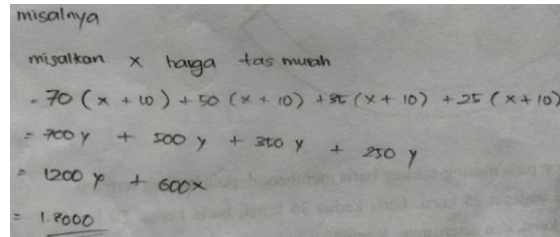 misalnya
misalkan x harga tas murah
= 70 (x + 10) + 50 (x + 10) + 35 (x + 10) + 25 (x + 10)
= 700 y + 500 y + 350 y + 250 y
= 1200 y + 600x
= 1.8000